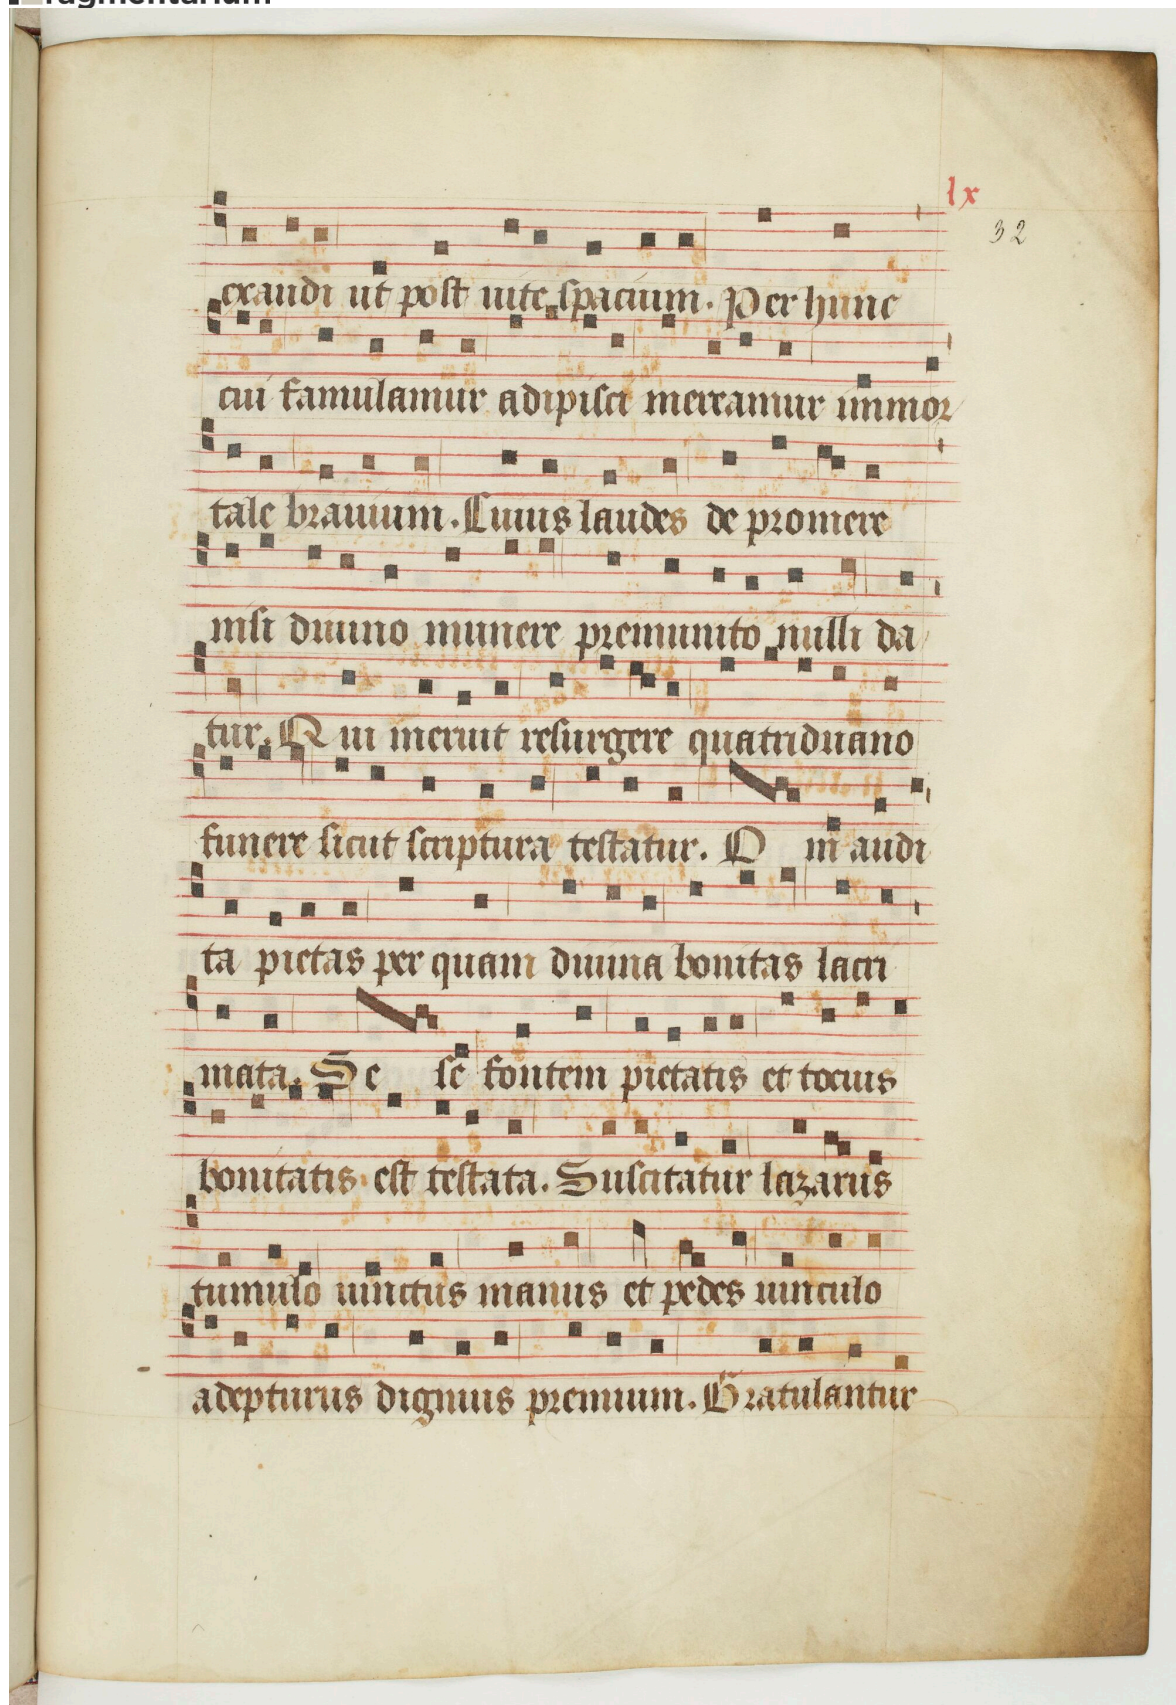 fragmentarium
lx
32
exaudi ut post uite spacium. Per hunc
cui famulamur adipisci mereamur immor
tale brauium. Cuius laudes de promere
nisi diuino munere premunito nulli da
tur. Qui meruit resurgere quatriduano
funere sicut scriptura testatur. O in audi
ta pietas per quam diuina bonitas lacri
mata. Se se fontem pietatis et tocius
bonitatis est testata. Suscitatur lazarus
tumulo uinctus manus et pedes uinculo
adepturus dignius premium. Gratulantur